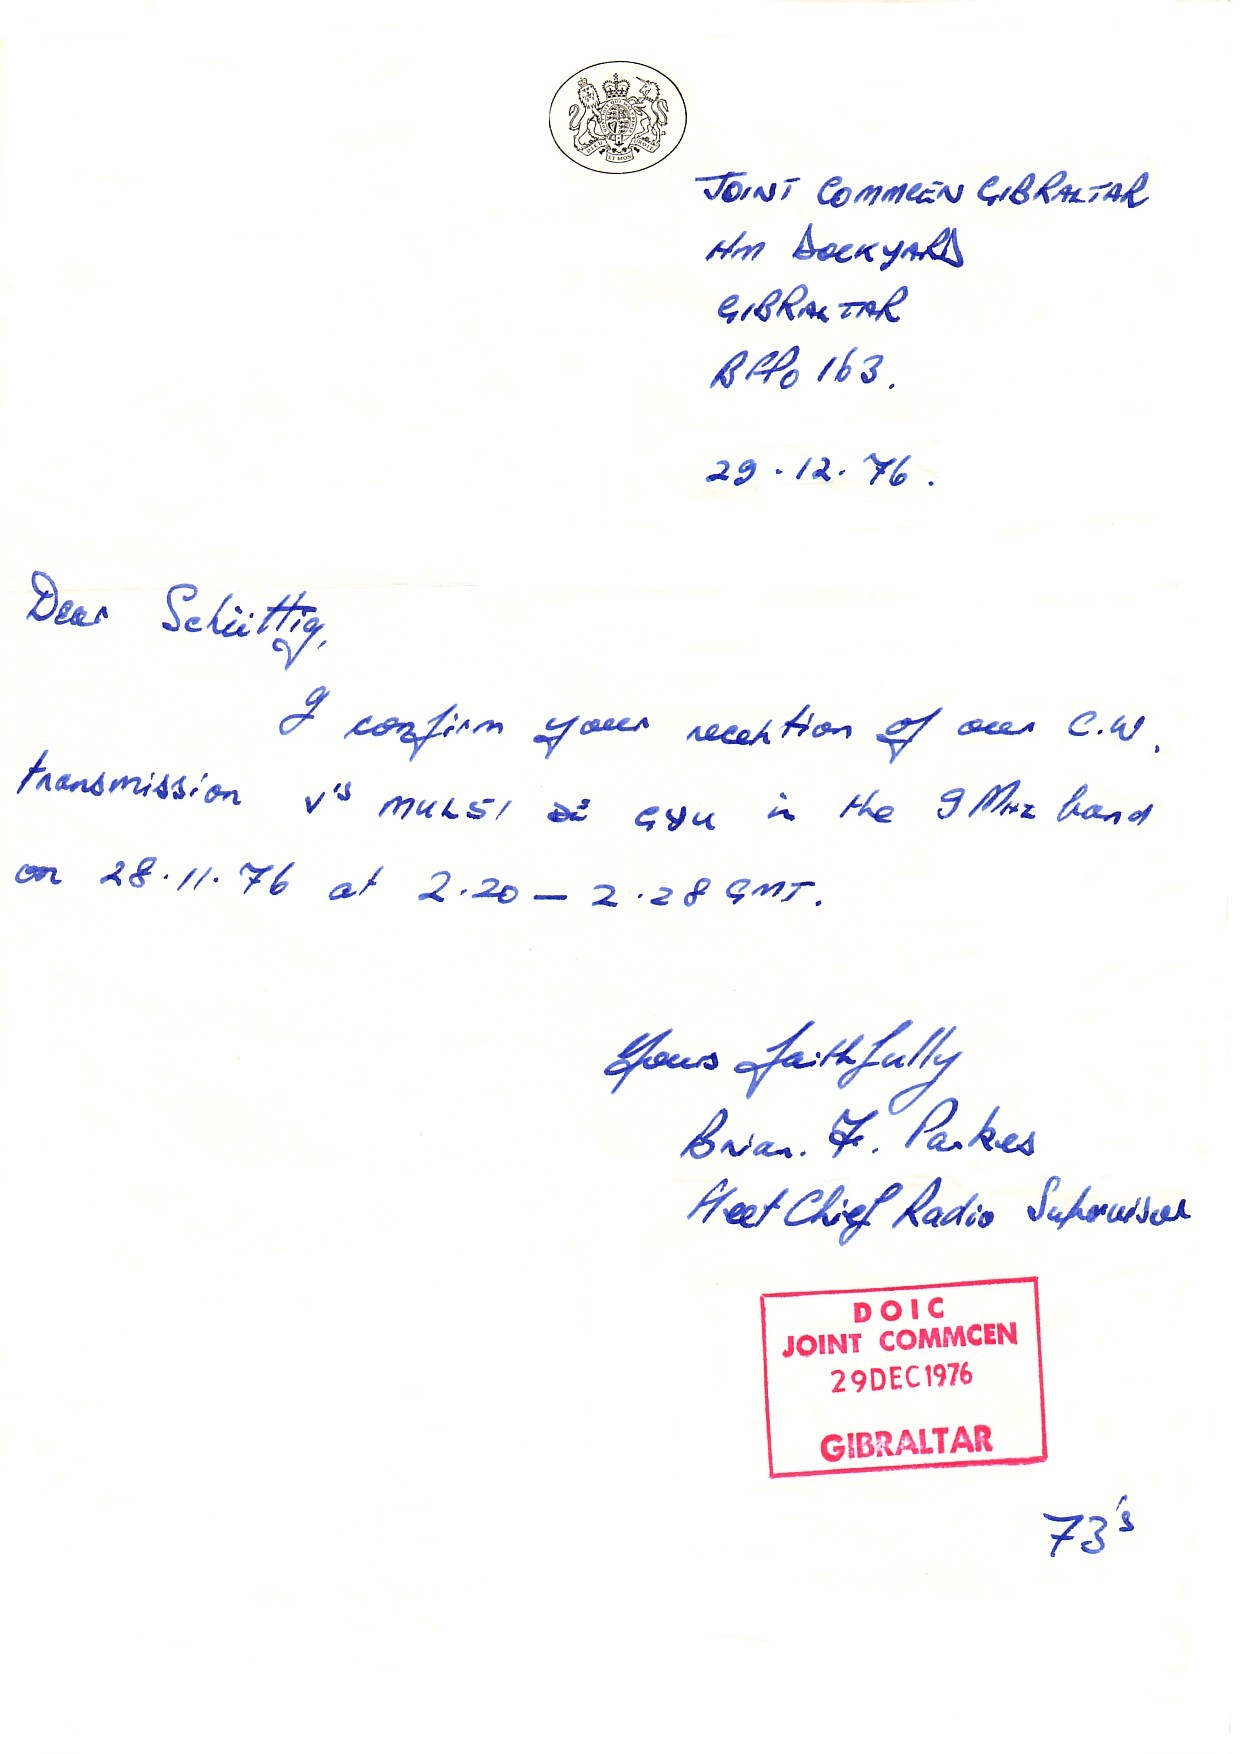 DIEU ET MON DROIT
JOINT COMMCEN GIBRALTAR
HM DOCKYARD
GIBRALTAR
BFPO 163.
29.12.76.
Dear Schüttig,
I confirm your reception of our C.W.
transmission v's MUL51 DE GYU in the 9 MHz band
on 28.11.76 at 2.20 – 2.28 GMT.
Yours faithfully
Brian. F. Parkes
Fleet Chief Radio Supervisor
DOIC
JOINT COMMCEN
29 DEC 1976
GIBRALTAR
73's